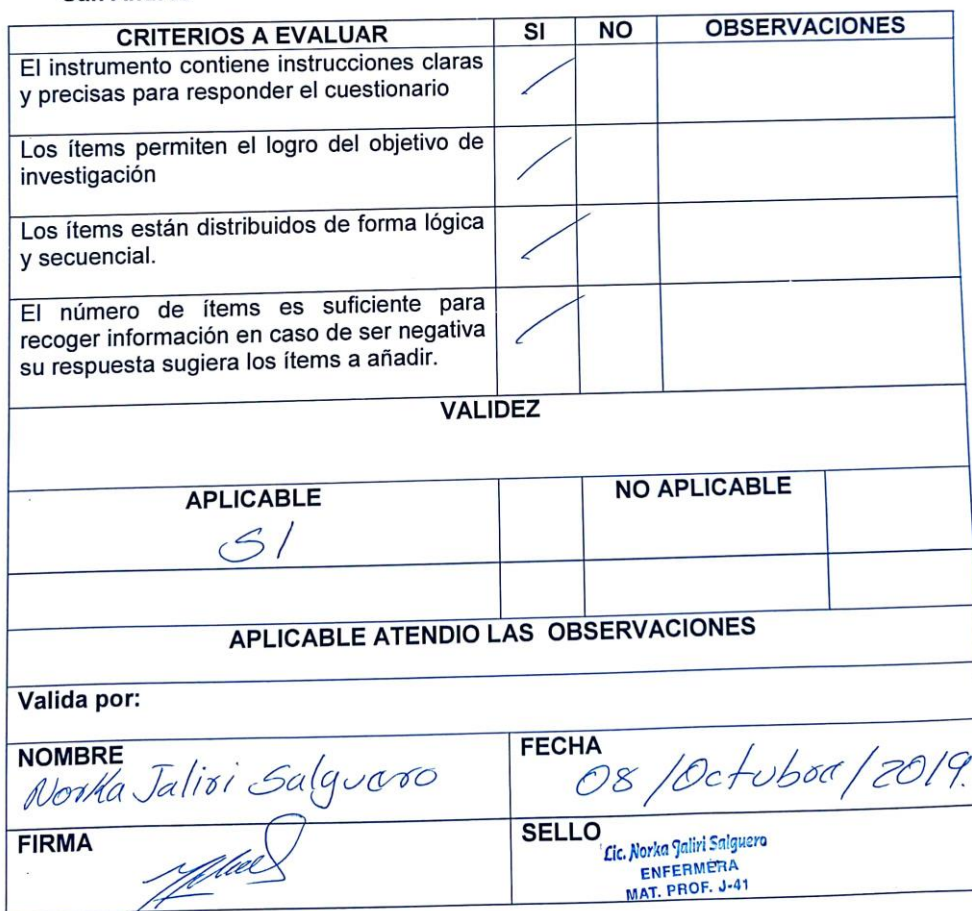 CRITERIOS A EVALUAR SI NO OBSERVACIONES
El instrumento contiene instrucciones claras
y precisas para responder el cuestionario
Los ítems permiten el logro del objetivo de
investigación
Los ítems están distribuidos de forma lógica
y secuencial.
El número de ítems es suficiente para
recoger información en caso de ser negativa
su respuesta sugiera los ítems a añadir.
VALIDEZ
APLICABLE NO APLICABLE
SI
APLICABLE ATENDIO LAS OBSERVACIONES
Valida por:
NOMBRE FECHA
Norka Jaliri Salguero 08/Octubre/2019.
FIRMA SELLO
Lic. Norka Jaliri Salguero
ENFERMERA
MAT. PROF. J-41